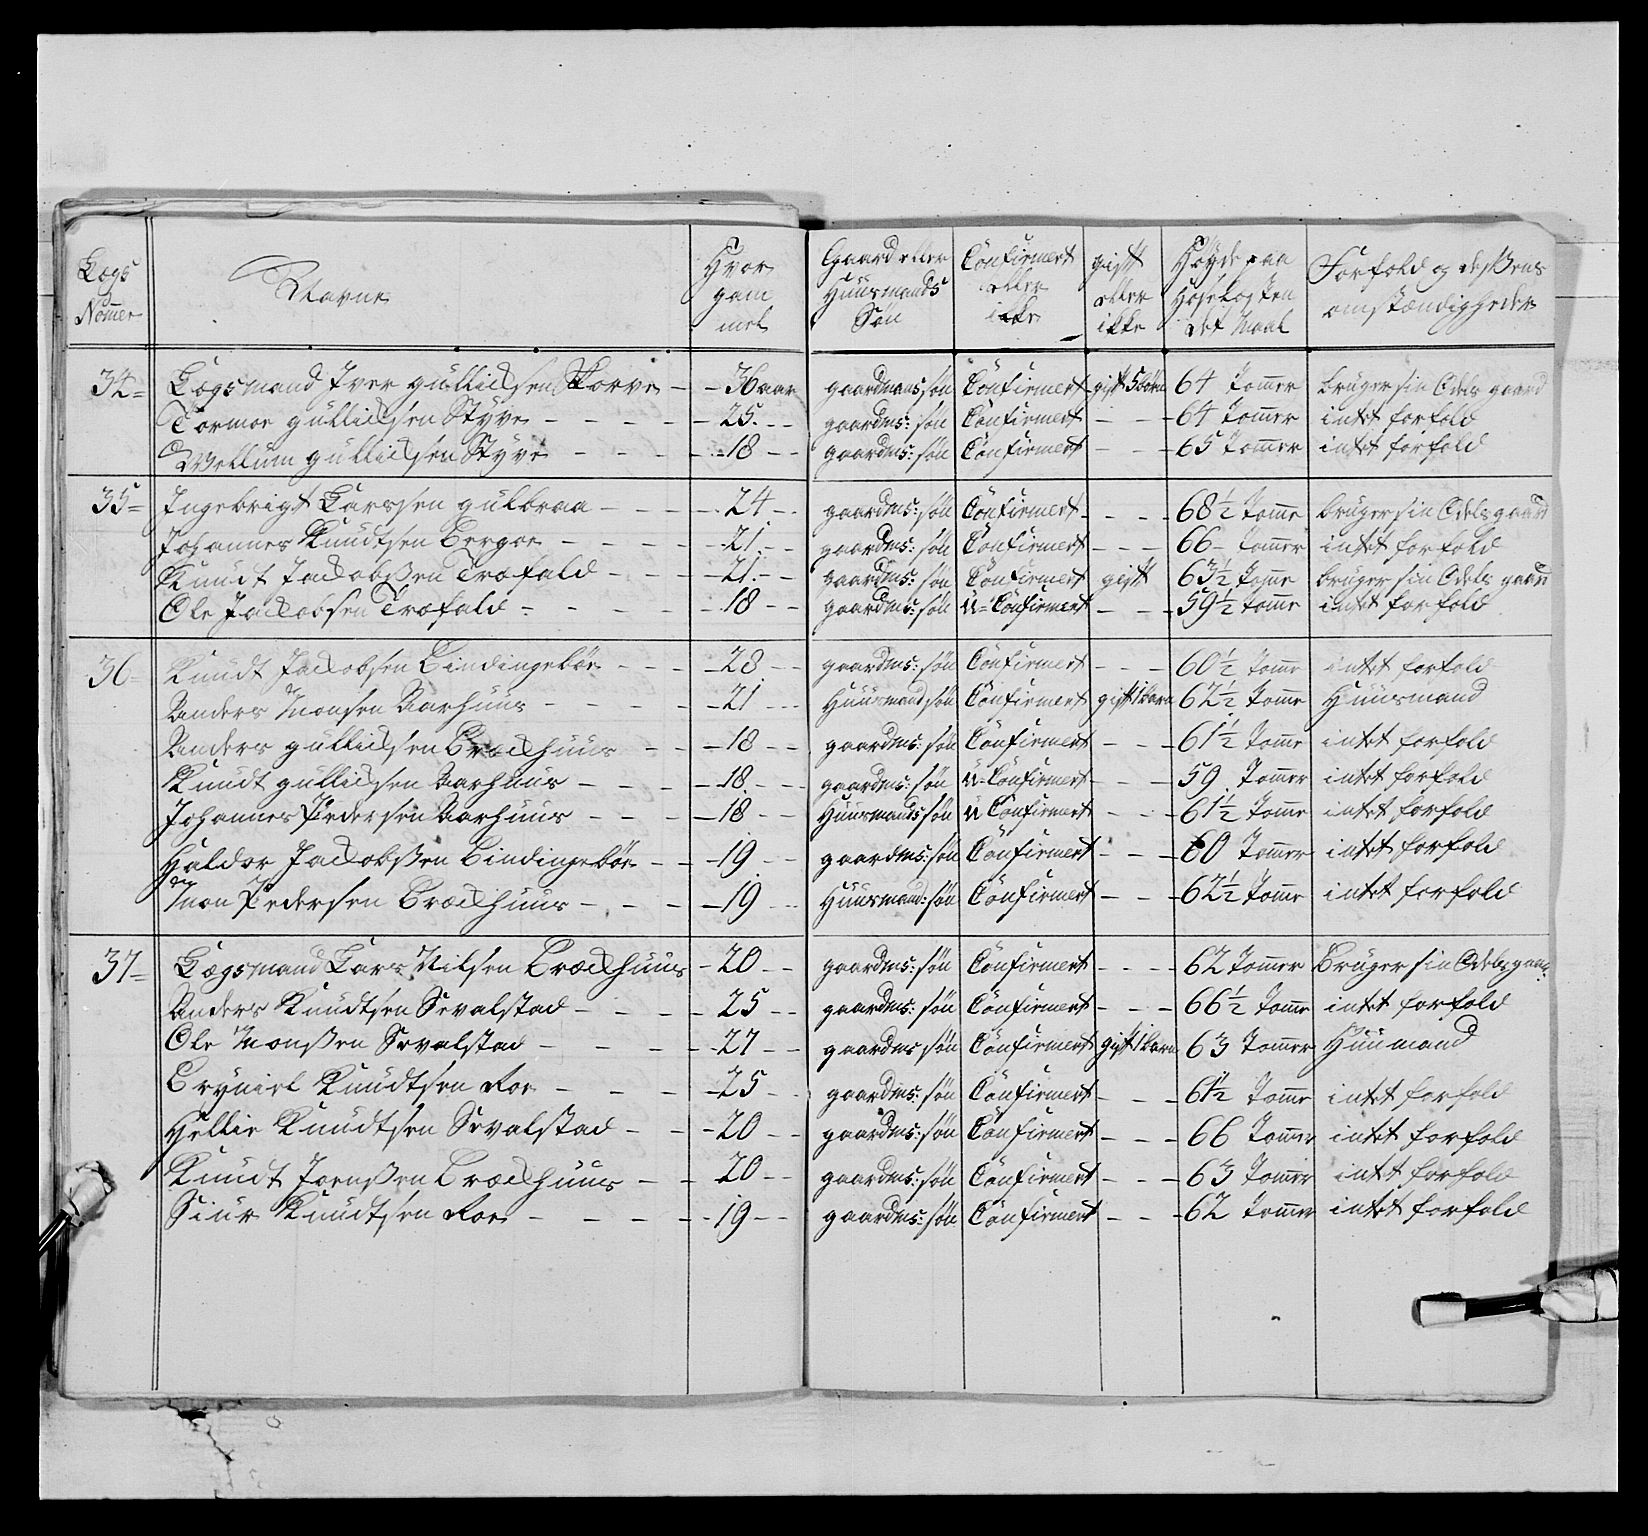 Lægs Nomer | Navne | Hvor gam mel | Gaard eller Huusmands Søn | Confirmert eller ikke | gift eller ikke | Høyde paa Hosesokken det Maal | Forfald og desßens omstændigheder
34= | Lægsmand Iver gullicksen Skorve - | - 36 aar | gaardmans søn | Confirmert | gift 5 børn | 64 Tommer | bruger sin Odels gaard
Tormoe gullicksen Styve - - - - | - 25. - - | gaardms: søn | Confirmert | - - - | 64 Tommer | intet forfald
Wellum gullicksen Styve - - - | - 18 - - | gaardms: søn | Confirmert | - - - | 65 Tommer | intet forfald
35= | Ingebrigt Larssen gulbraa - - - | - 24 - | gaardms: søn | Confirmert | - - - | 68½ Tomme | bruger sin Odels gaard
Johannes Knudtsen Bergoe - - - - | - 21. - - | gaardms: søn | Confirmert | - - - | 66 - Tommer | intet forfald
Knudt Jackobßen Træfald - - - | - 21. - - | gaardms: søn | Confirmert | gift | 63½ Tomme | bruger sin Odels gaard
Ole Jackobsen Træfald - - - - | - 18 - - | gaardms: søn | u=Confirmert | - - - | 59½ tomme | intet forfald
36= | Knudt Jackobsen Lindingebøe - - - | - 28 - - | gaardms: søn | Confirmert | - - - | 60½ Tomme | intet forfald
Anders Monsen Aarhuus - - - - | - 21 - - | Huusmand søn | Confirmert | gift 1 barn | 62½ Tomme | Huusmand
Anders gullicksen Bræckhuus - - | - 18 - - | gaardms: søn | Confirmert | - - - | 61½ Tomme | intet forfald
Knudt gullicksen Aarhuus - - - - | - 18. - - | gaardms: søn | u=Confirmert | - - - | 59 Tommer | intet forfald
Johannes Pedersen Aarhuus - - - | - 18 - - | Huusmands søn | u Confirmert | - - - | 61½ Tomme | intet forfald
Haldor Jackobßen Lindingebøe - - | - 19 - - | gaardms: søn | Confirmert | - - - | 60 Tommer | intet forfald
Mon Pedersen Bræckhuus - - - | - 19 - - | Huusmand: søn | Confirmert | - - - | 62½ Tomme | intet forfald
37= | Lægsmand Lars Nilsen Bræckhuus | - 20 - - | gaardms: søn | Confirmert | - - - | 62 Tommer | Bruger sin Odels gaar
Anders Knudtsen Sevalstad - - - | - 25 - - | gaardms: søn | Confirmert | - - - | 66½ Tomme | intet forfald
Ole Monßen Sevalstad - - - - | - 27 - - | gaardms søn | Confirmert | gift 1 barn | 63 Tommer | Huumand
Bryniel Knudtsen Roe - - - | - 25 - - | gaardms: søn | Confirmert | - - - | 61½ Tomme | intet forfald
Hellie Knudtsen Sevalstad - - | - 20 - - | gaardms: søn | Confirmert | - - - | 66 Tommer | intet forfald
Knudt Joenßen Bræckhuus - - | 20 - - | gaardms: søn | Confirmert | - - - | 63 Tommer | intet forfald
Siur Knudtsen Roe - - - - | - 19 - - | gaardms: søn | Confirmert | - - - | 62 Tommer | intet forfald